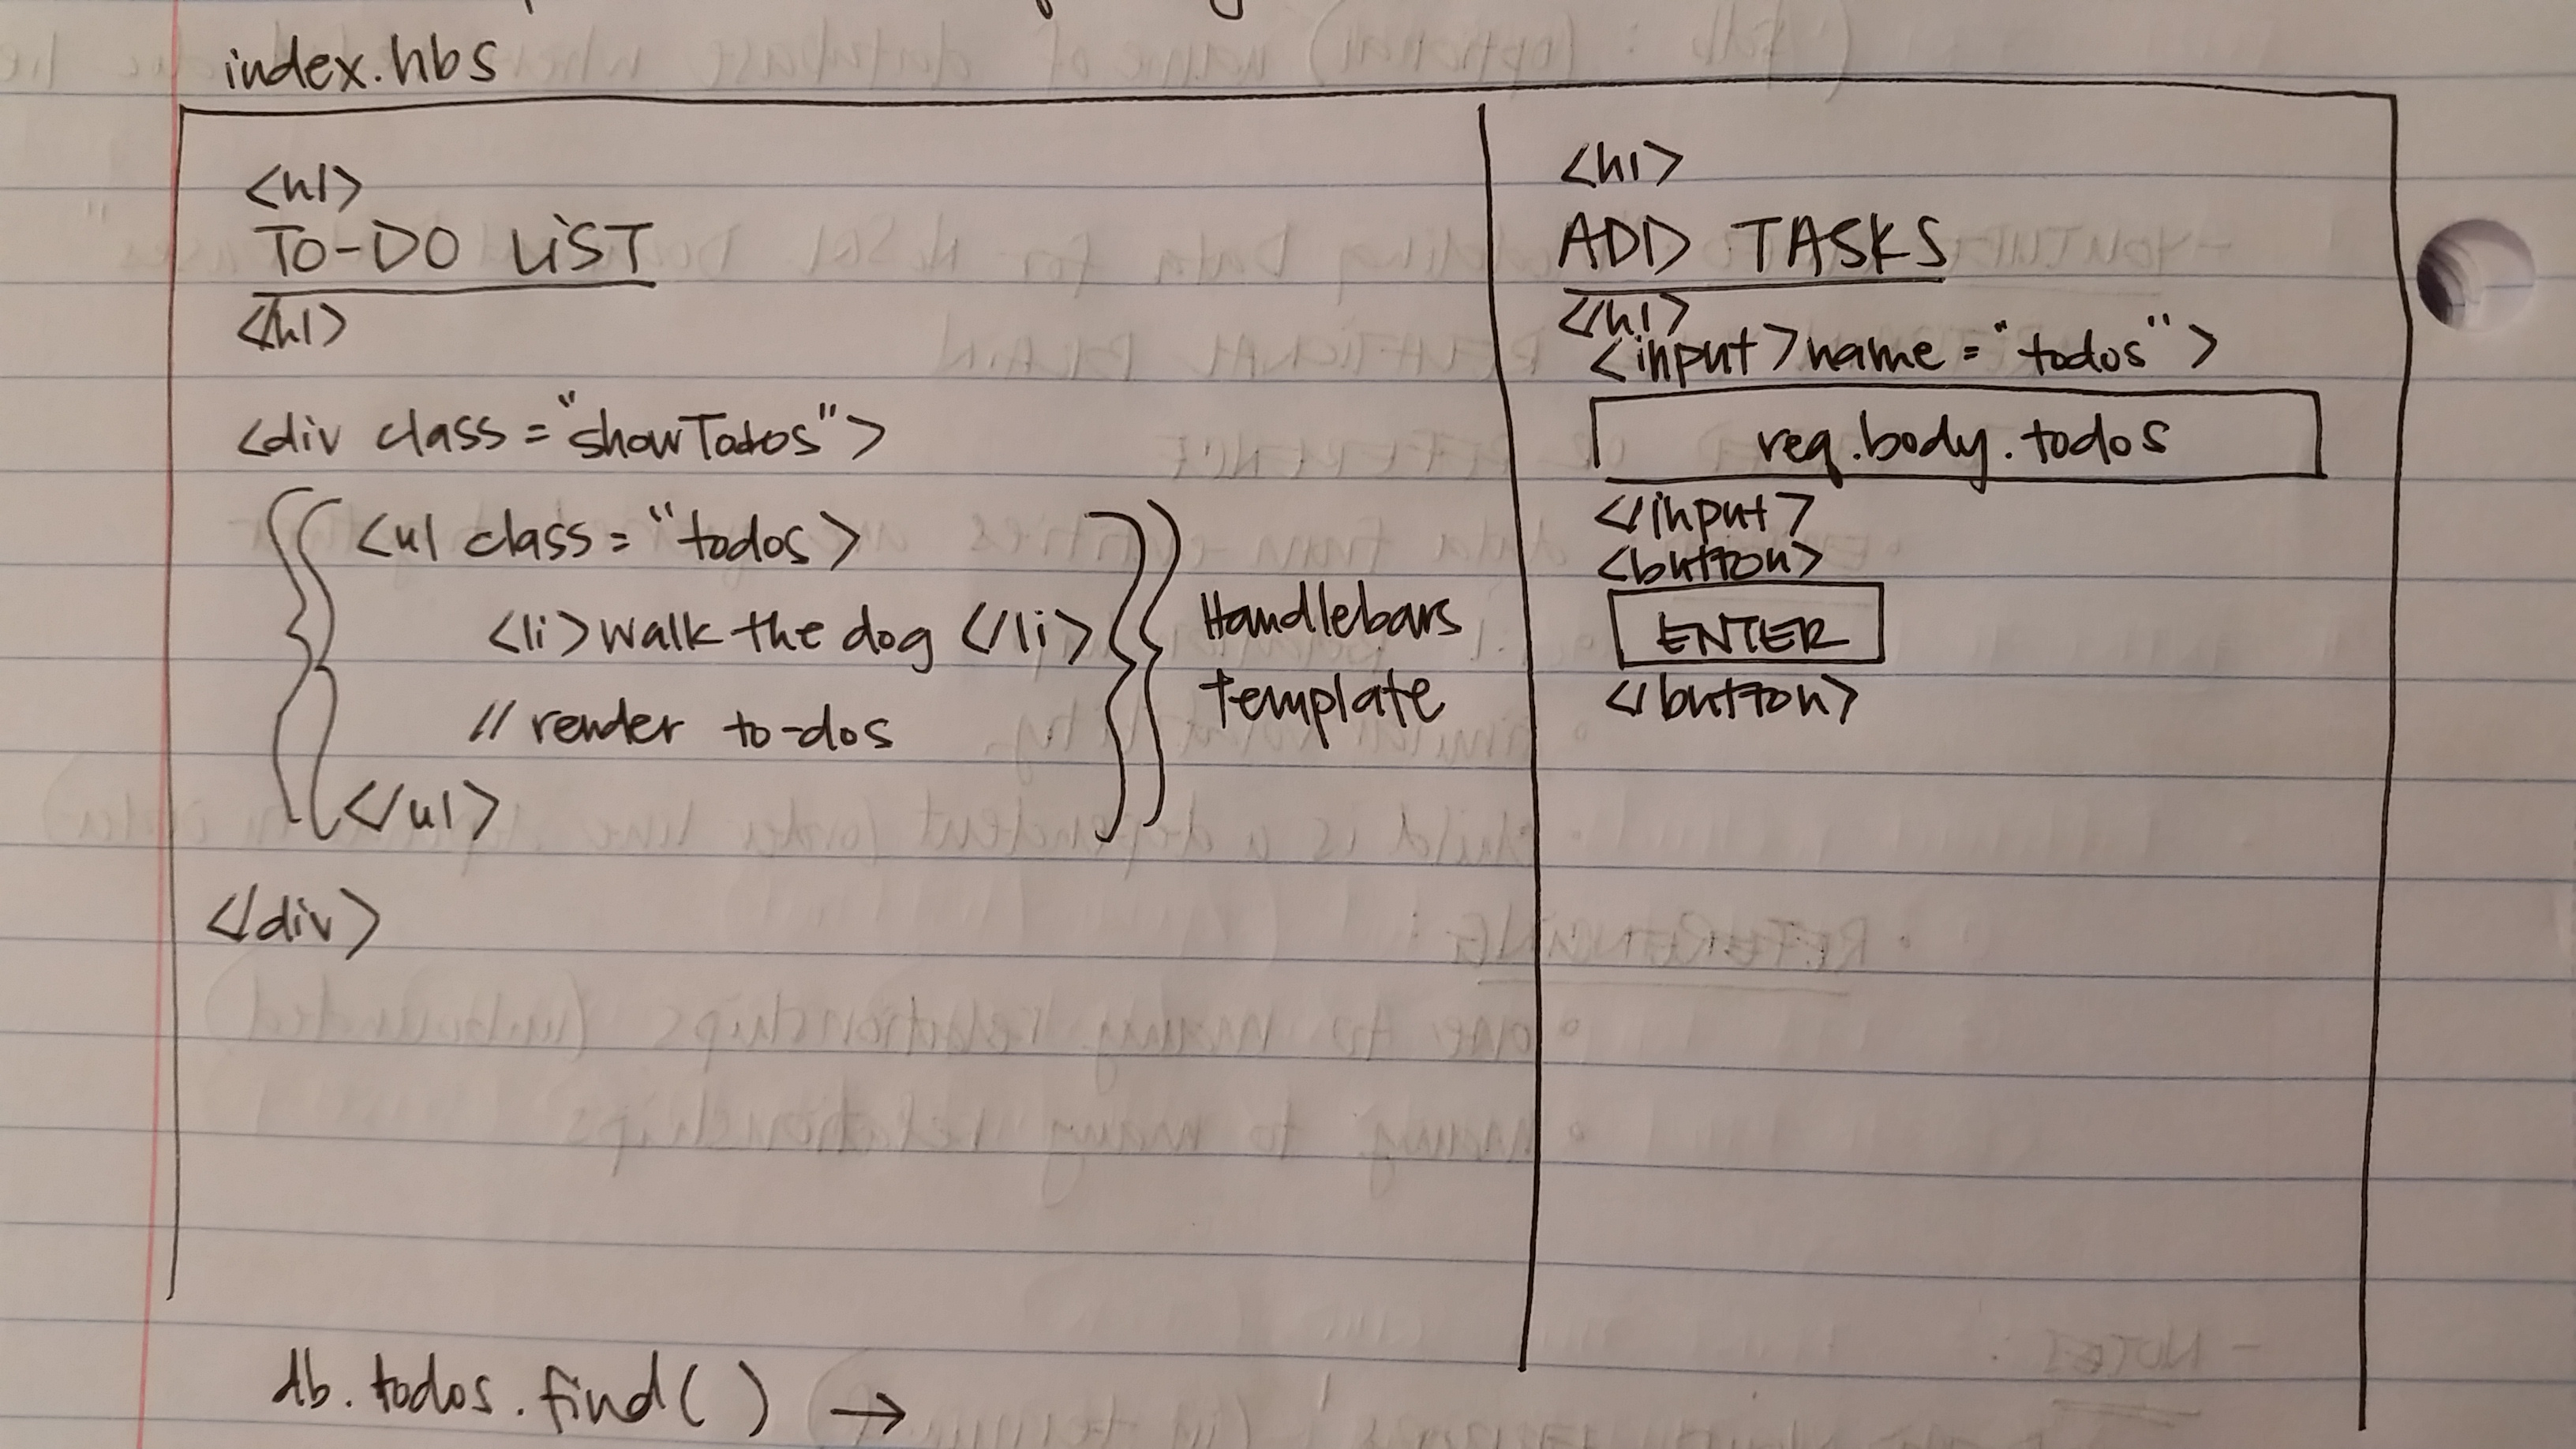 index.hbs
<h1>
TO-DO LIST
</h1>
<div class="showTodos">
{{ <ul class="todos>
<li>walk the dog </li>
// render to-dos
</ul> }}
Handlebars
template
</div>
<h1>
ADD TASKS
</h1>
<input>name="todos">
req.body.todos
</input>
<button>
ENTER
</button>
db.todos.find() →